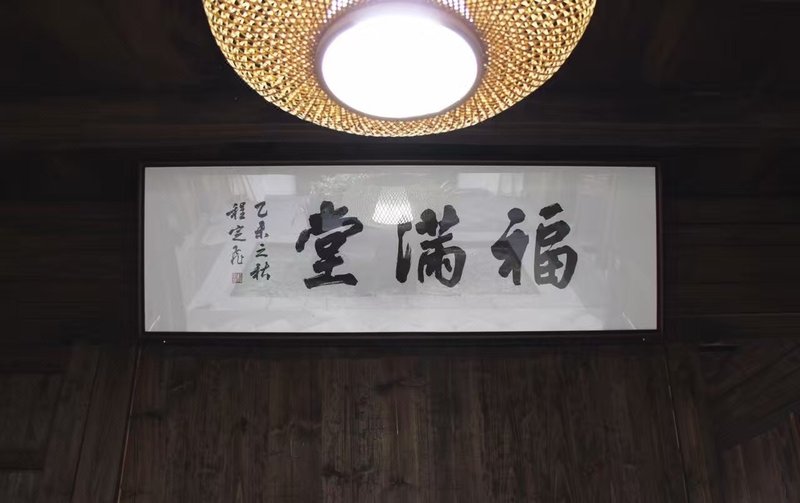 福满堂
乙未之秋
程定飛